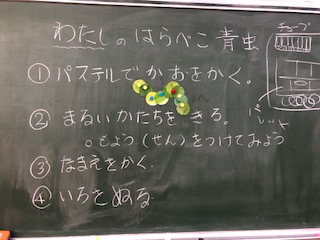 わたしのはらぺこ青虫
①パステルでかおをかく。
②まるいかたちをきる。
○もよう(せん)をつけてみよう
③なまえをかく。
④いろをぬる
チューブ
パレット